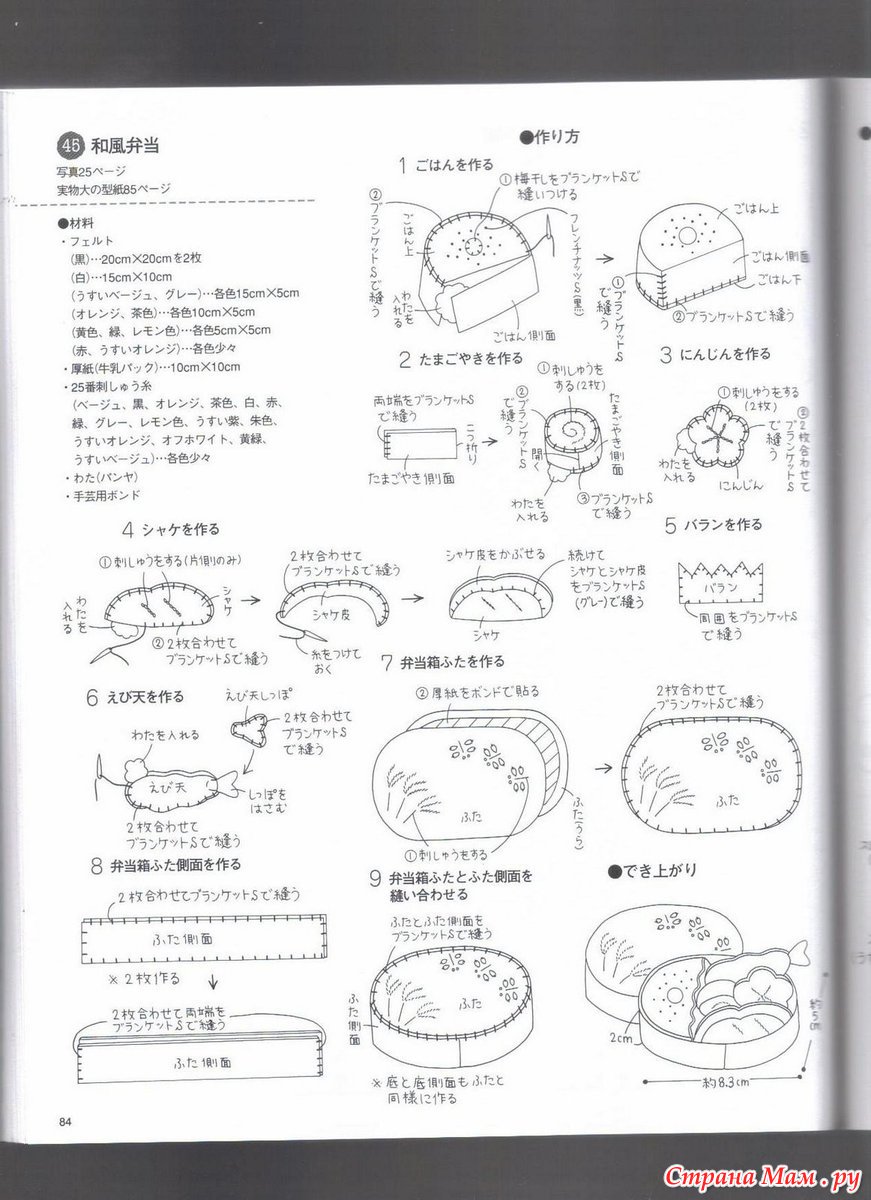 45 和風弁当
写真25ページ
実物大の型紙85ページ
●材料
・フェルト
(黒)…20cm×20cmを2枚
(白)…15cm×10cm
(うすいベージュ、グレー)…各色15cm×5cm
(オレンジ、茶色)…各色10cm×5cm
(黄色、緑、レモン色)…各色5cm×5cm
(赤、うすいオレンジ)…各色少々
・厚紙(牛乳パック)…10cm×10cm
・25番刺しゅう糸
(ベージュ、黒、オレンジ、茶色、白、赤、
緑、グレー、レモン色、うすい紫、朱色、
うすいオレンジ、オフホワイト、黄緑、
うすいベージュ)…各色少々
・わた(パンヤ)
・手芸用ボンド
●作り方
1 ごはんを作る
①梅干しをブランケットSで
縫いつける
②ブランケットSで縫う
ごはん上
フレンチナッツS(黒)
わたを
入れる
ごはん側面
ごはん上
ごはん側面
ごはん下
①ブランケットS
で縫う
②ブランケットSで縫う
2 たまごやきを作る
両端をブランケットS
で縫う
二つ折り
たまごやき側面
①刺しゅうを
する(2枚)
②ブランケットS
で縫う
開く
たまごやき側面
わたを
入れる
③ブランケットS
で縫う
3 にんじんを作る
①刺しゅうをする
(2枚)
②2枚合わせて
ブランケットS
で縫う
わたを
入れる
にんじん
4 シャケを作る
①刺しゅうをする(片側のみ)
シャケ
わたを
入れる
②2枚合わせて
ブランケットSで縫う
2枚合わせて
ブランケットSで縫う
シャケ皮
糸をつけて
おく
シャケ皮をかぶせる
続けて
シャケとシャケ皮
をブランケットS
(グレー)で縫う
シャケ
5 バランを作る
バラン
周囲をブランケットS
で縫う
6 えび天を作る
えび天しっぽ
2枚合わせて
ブランケットS
で縫う
わたを入れる
えび天
しっぽを
はさむ
2枚合わせて
ブランケットSで縫う
7 弁当箱ふたを作る
②厚紙をボンドで貼る
ふた(うら)
①刺しゅうをする
2枚合わせて
ブランケットSで縫う
ふた
8 弁当箱ふた側面を作る
2枚合わせてブランケットSで縫う
ふた側面
※2枚作る
2枚合わせて両端を
ブランケットSで縫う
ふた側面
9 弁当箱ふたとふた側面を
縫い合わせる
ふたとふた側面を
ブランケットSで縫う
ふた
ふた側面
※底と底側面もふたと
同様に作る
●でき上がり
2cm
約5cm
約8.3cm
84
Страна Мам.ру